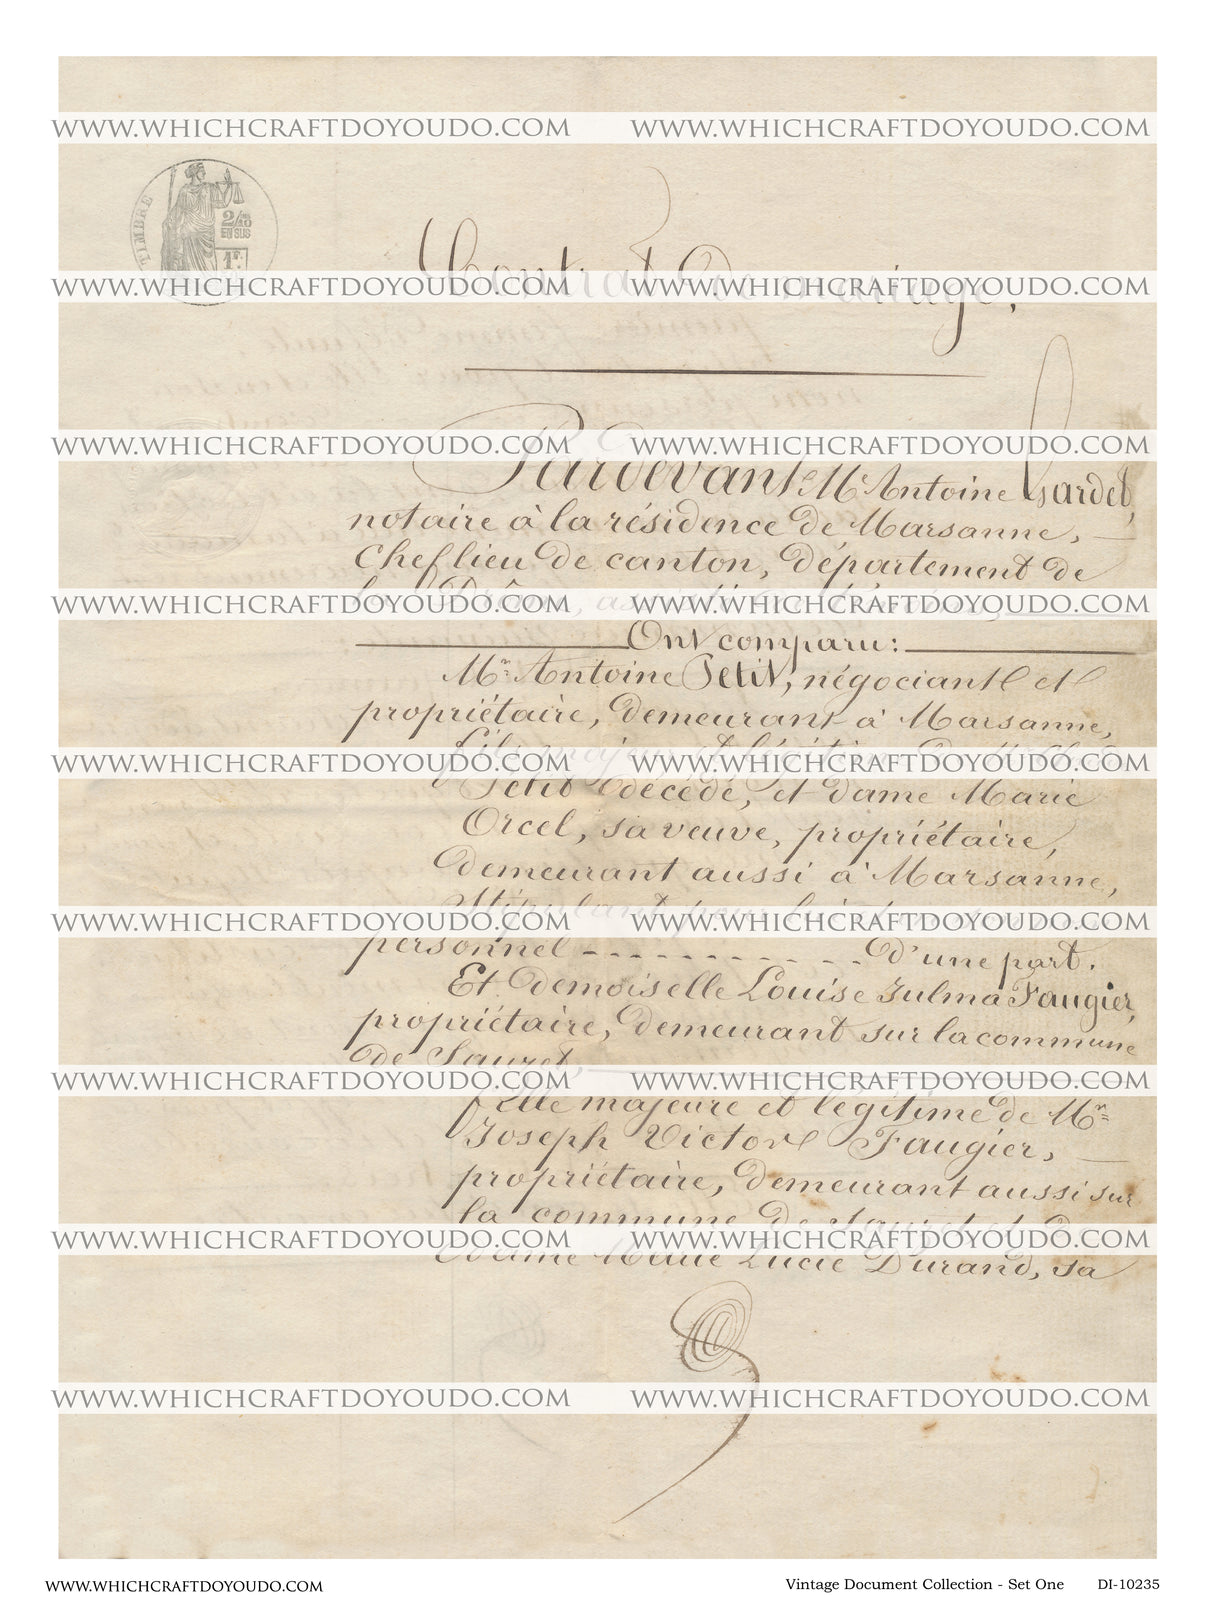 WWW.WHICHCRAFTDOYOUDO.COM WWW.WHICHCRAFTDOYOUDO.COM
TIMBRE
2/10
EN SUS
1F.
Contrat de mariage.
WWW.WHICHCRAFTDOYOUDO.COM WWW.WHICHCRAFTDOYOUDO.COM
WWW.WHICHCRAFTDOYOUDO.COM WWW.WHICHCRAFTDOYOUDO.COM
Pardevant Me Antoine Gardet,
notaire à la résidence de Marsanne,
Chef lieu de canton, département de
la Drôme,
WWW.WHICHCRAFTDOYOUDO.COM WWW.WHICHCRAFTDOYOUDO.COM
Ont comparu:
Mr Antoine Petit, négociant et
propriétaire, demeurant à Marsanne,
fils majeur et légitime de
WWW.WHICHCRAFTDOYOUDO.COM WWW.WHICHCRAFTDOYOUDO.COM
Petit décédé, et dame Marie
Orcel, sa veuve, propriétaire,
demeurant aussi à Marsanne,
Stipulant pour lui et en son nom
WWW.WHICHCRAFTDOYOUDO.COM WWW.WHICHCRAFTDOYOUDO.COM
personnel - - - - - - - - - - d'une part.
Et demoiselle Louise Zulma Faugier,
propriétaire, demeurant sur la commune
de Sauzet,
WWW.WHICHCRAFTDOYOUDO.COM WWW.WHICHCRAFTDOYOUDO.COM
fille majeure et légitime de Mr
Joseph Victor Faugier,
propriétaire, demeurant aussi sur
la commune de Sauzet et de
WWW.WHICHCRAFTDOYOUDO.COM WWW.WHICHCRAFTDOYOUDO.COM
dame Marie Lucie Durand, sa
WWW.WHICHCRAFTDOYOUDO.COM WWW.WHICHCRAFTDOYOUDO.COM
WWW.WHICHCRAFTDOYOUDO.COM Vintage Document Collection - Set One DI-10235